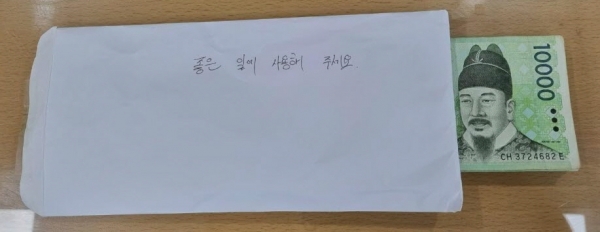 좋은 일에 사용해 주세요.
10000
CH 3724682 E